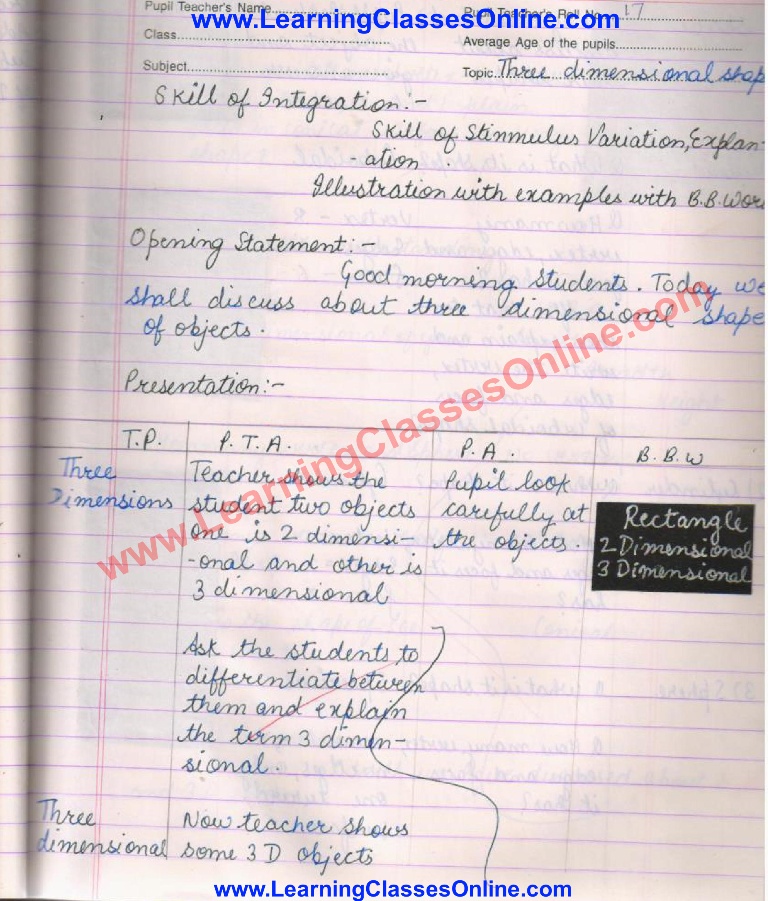 www.LearningClassesOnline.com
Pupil Teacher's Name
Pupil Teacher's Roll No. 17
Class
Average Age of the pupils
Subject
Topic Three dimensional shap
Skill of Integration:-
Skill of Stinmulus Variation, Explan-
-ation.
Illustration with examples with B.B. Wor
Opening Statement:-
Good morning students. Today we
shall discuss about three dimensional shape
of objects.
Presentation:-
www.LearningClassesOnline.com
T.P. P.T.A. P.A. B.B.W
Three Dimensions
Teacher shows the
student two objects
one is 2 dimensi-
-onal and other is
3 dimensional
Pupil look
carefully at
the objects.
Rectangle
2 Dimensional
3 Dimensional
Ask the students to
differentiate between
them and explain
the term 3 dimen-
sional.
Three
dimensional
Now teacher shows
some 3 D objects
www.LearningClassesOnline.com